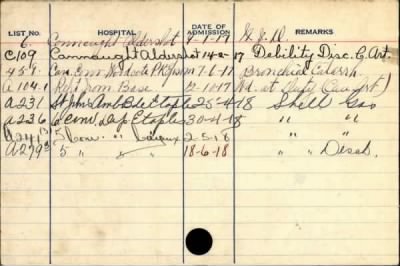 LIST NO. HOSPITAL DATE OF ADMISSION REMARKS
6. Connaught Aldershot 9-1-17
C109 Connaught Aldershot 14-2-17 Debility Disc. C. Art.
459 Con. Woodcote Pk Epsom 7-6-17 Bronchial Catarrh
A104-1 from Base 12-10-17 at Duty
A231 St Jns Amb Bde Etaples 25-4-18 Shell Gas
A236 6 Conv Dep Etaples 30-4-18 " "
A241 5 Conv. " Cayeux 2-5-18 " "
A279 5 " " 18-6-18 " " Disch.